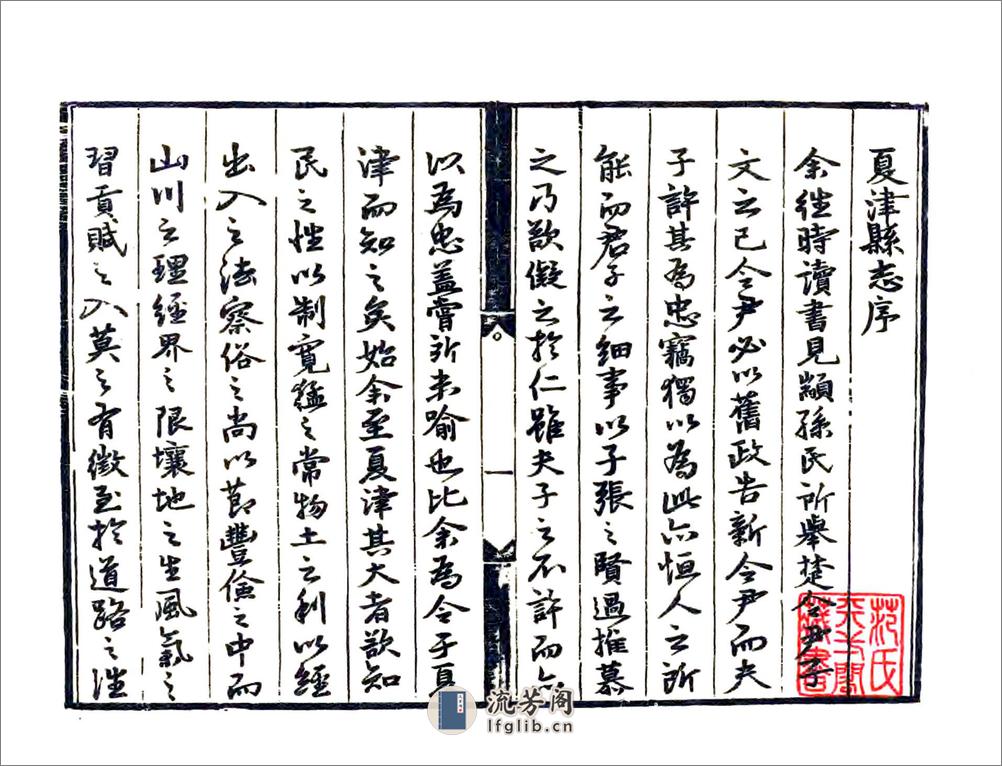 夏津縣志序
余徃時讀書見顓孫氏所舉楚令尹子
文之已令尹必以舊政告新令尹而夫
子許其為忠竊獨以為此亦恒人之所
能而君子之細事以子張之賢過推慕
之乃欲儗之於仁雖夫子之不許而亦
以為忠盖嘗所未喻也比余為令于夏
津而知之矣始余至夏津其大者欲知
民之性以制寛猛之常物土之利以經
出入之法察俗之尚以節豐儉之中而
山川之理經界之限壤地之生風氣之
習貢賦之入莫之有徵至於道路之徃
一
范氏天一閣藏書
流芳阁
lfglib.cn